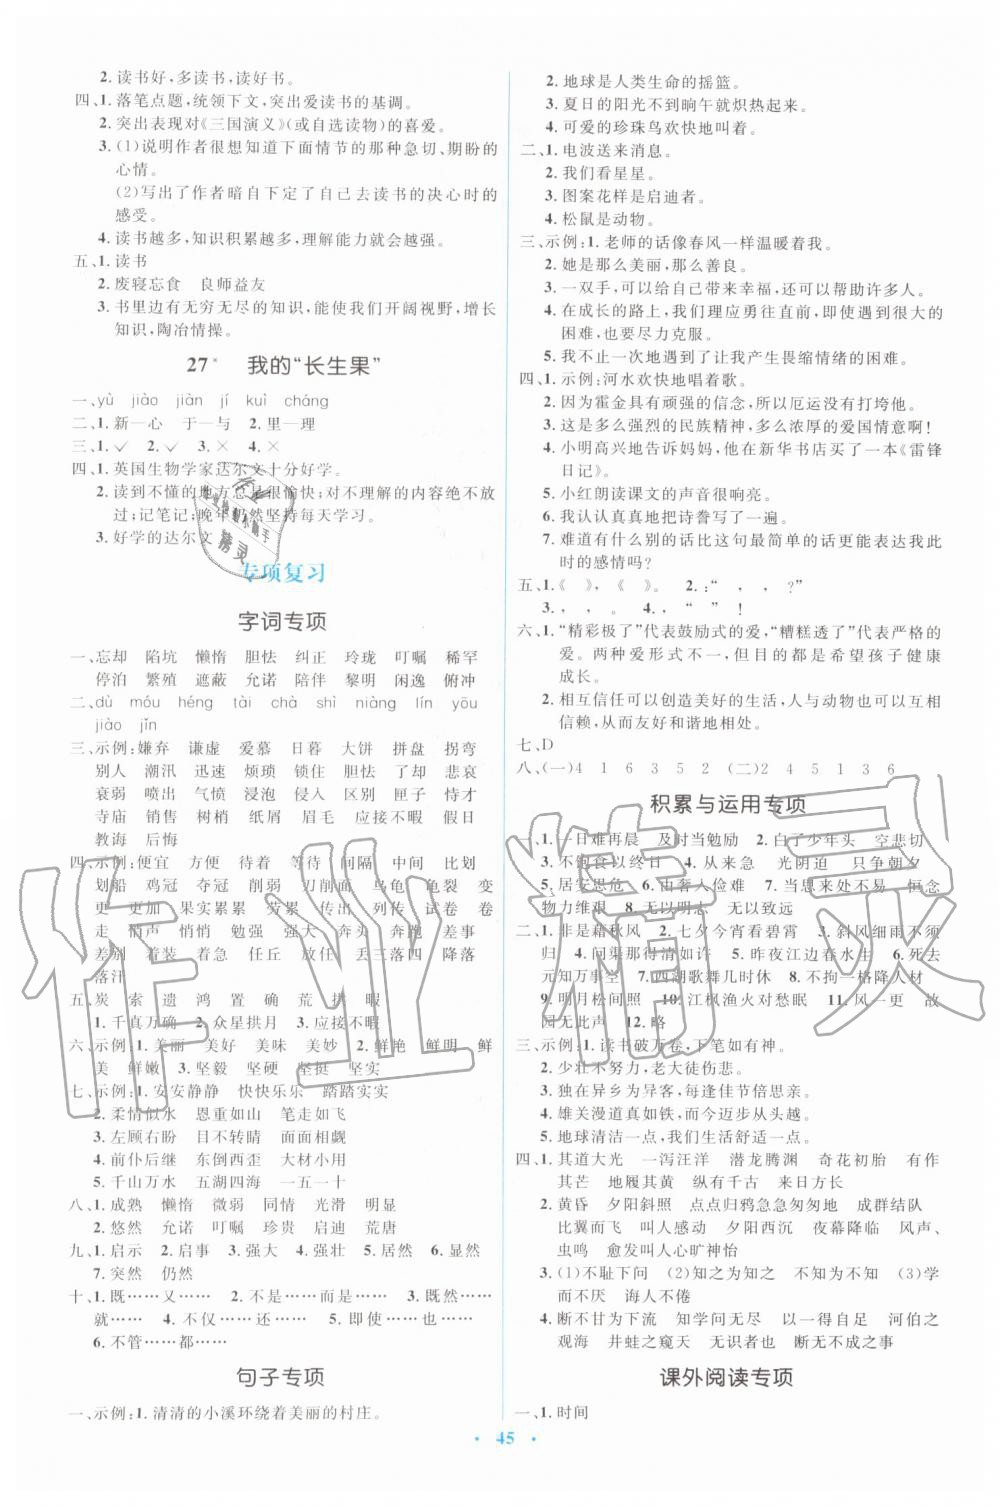 2. 读书好,多读书,读好书。
四、1. 落笔点题,统领下文,突出爱读书的基调。
2. 突出表现对《三国演义》(或自选读物)的喜爱。
3. (1)说明作者很想知道下面情节的那种急切、期盼的
心情。
(2)写出了作者暗自下定了自己去读书的决心时的
感受。
4. 读书越多,知识积累越多,理解能力就越强。
五、1. 读书
2. 废寝忘食 良师益友
3. 书里边有无穷无尽的知识,能使我们开阔视野,增长
知识,陶冶情操。
27* 我的“长生果”
一、yù jiào jiàn jí kuì cháng
二、1. 新—心 于—与 2. 里—理
三、1. ✓ 2. ✓ 3. × 4. ×
四、1. 英国生物学家达尔文十分好学。
2. 读到不懂的地方总是很愉快;对不理解的内容绝不放
过;记笔记;晚年仍然坚持每天学习。
3. 好学的达尔文
专项复习
字词专项
一、忘却 陷坑 懒惰 胆怯 纠正 玲珑 叮嘱 稀罕
停泊 繁殖 遮蔽 允诺 陪伴 黎明 闲逸 俯冲
二、dù móu héng tài chà shì niàng lín yōu
jiào jǐn
三、示例:嫌弃 谦虚 爱慕 日暮 大饼 拼盘 拐弯
别人 潮汛 迅速 烦琐 锁住 胆怯 了却 悲哀
衰弱 喷出 气愤 浸泡 侵犯 区别 匣子 恃才
寺庙 销售 树梢 纸屑 眉毛 应接不暇 假日
教诲 后悔
四、示例:便宜 方便 待着 等待 间隔 中间 比划
划船 鸡冠 夺冠 削弱 刀削面 乌龟 龟裂 变
更 更加 果实累累 劳累 传出 列传 试卷 卷
走 悄声 悄悄 勉强 强大 奔头 奔跑 差距
差别 着装 着急 任丘 放任 丢三落四 降落
落汗
五、炭 索 遗 鸿 置 确 荒 拱 暇
1. 千真万确 2. 众星拱月 3. 应接不暇
六、示例:1. 美丽 美好 美味 美妙 2. 鲜艳 鲜明 鲜
美 鲜嫩 3. 坚毅 坚硬 坚挺 坚实
七、示例:1. 安安静静 快快乐乐 踏踏实实
2. 柔情似水 恩重如山 笔走如飞
3. 左顾右盼 目不转睛 面面相觑
4. 前仆后继 东倒西歪 大材小用
5. 千山万水 五湖四海 一五一十
八、1. 成熟 懒惰 微弱 同情 光滑 明显
2. 悠然 允诺 叮嘱 珍贵 启迪 荒唐
九、1. 启示 2. 启事 3. 强大 4. 强壮 5. 居然 6. 显然
7. 突然 仍然
十、1. 既……又…… 2. 不是……而是…… 3. 既然……
就…… 4. 不仅……还…… 5. 即使……也……
6. 不管……都……
句子专项
一、示例:1. 清清的小溪环绕着美丽的村庄。
2. 地球是人类生命的摇篮。
3. 夏日的阳光不到晌午就炽热起来。
4. 可爱的珍珠鸟欢快地叫着。
二、1. 电波送来消息。
2. 我们看星星。
3. 图案花样是启迪者。
4. 松鼠是动物。
三、示例:1. 老师的话像春风一样温暖着我。
2. 她是那么美丽,那么善良。
3. 一双手,可以给自己带来幸福,还可以帮助许多人。
4. 在成长的路上,我们理应勇往直前,即使遇到很大的
困难,也要尽力克服。
5. 我不止一次地遇到了让我产生畏缩情绪的困难。
四、1. 示例:河水欢快地唱着歌。
2. 因为霍金具有顽强的信念,所以厄运没有打垮他。
3. 这是多么强烈的民族精神,多么浓厚的爱国情意啊!
4. 小明高兴地告诉妈妈,他在新华书店买了一本《雷锋
日记》。
5. 小红朗读课文的声音很响亮。
6. 我认认真真地把诗誊写了一遍。
7. 难道有什么别的话比这句最简单的话更能表达我此
时的感情吗?
五、1. 《 》,《 》。 2. :“ , , ?”
3. , 。 4. ,“ ”!
六、1. “精彩极了”代表鼓励式的爱,“糟糕透了”代表严格的
爱。两种爱形式不一样,但都是希望孩子健康
成长。
2. 相互信任可以创造美好的生活,人与动物也可以相互
信赖,从而友好和谐地相处。
七、D
八、(一)4 1 6 3 5 2 (二)2 4 5 1 3 6
积累与运用专项
一、1. 一日难再晨 及时当勉励 2. 白了少年头 空悲切
3. 不饱食以终日 4. 从来急 光阴迫 只争朝夕
5. 居安思危 6. 由奢入俭难 7. 当思来处不易 恒念
物力维艰 8. 无以明志 无以致远
二、1. 非是藉秋风 2. 七夕今宵看碧霄 3. 斜风细雨不须
归 4. 问渠那得清如许 5. 昨夜江边春水生 6. 死去
元知万事空 7. 西湖歌舞几时休 8. 不拘一格降人材
9. 明月松间照 10. 江枫渔火对愁眠 11. 风一更 故
园无此声 12. 略
三、示例:1. 读书破万卷,下笔如有神。
2. 少壮不努力,老大徒伤悲。
3. 独在异乡为异客,每逢佳节倍思亲。
4. 雄关漫道真如铁,而今迈步从头越。
5. 地球清洁一点,我们生活舒适一点。
四、1. 其道大光 一泻汪洋 潜龙腾渊 奇花初胎 有作
其芒 地履其黄 纵有千古 来日方长
2. 黄昏 夕阳斜照 点点归鸦急急匆匆地 成群结队
比翼而飞 叫人感动 夕阳西沉 夜幕降临 风声、
虫鸣 愈发叫人心旷神怡
3. (1)不耻下问 (2)知之为知之 不知为不知 (3)学
而不厌 诲人不倦
4. 断不甘为下流 知学问无尽 以为莫己若 河伯之
观海 井蛙之窥天 无识者也 断无不成之事
课外阅读专项
一、1. 时间
· 45 ·
作业精灵